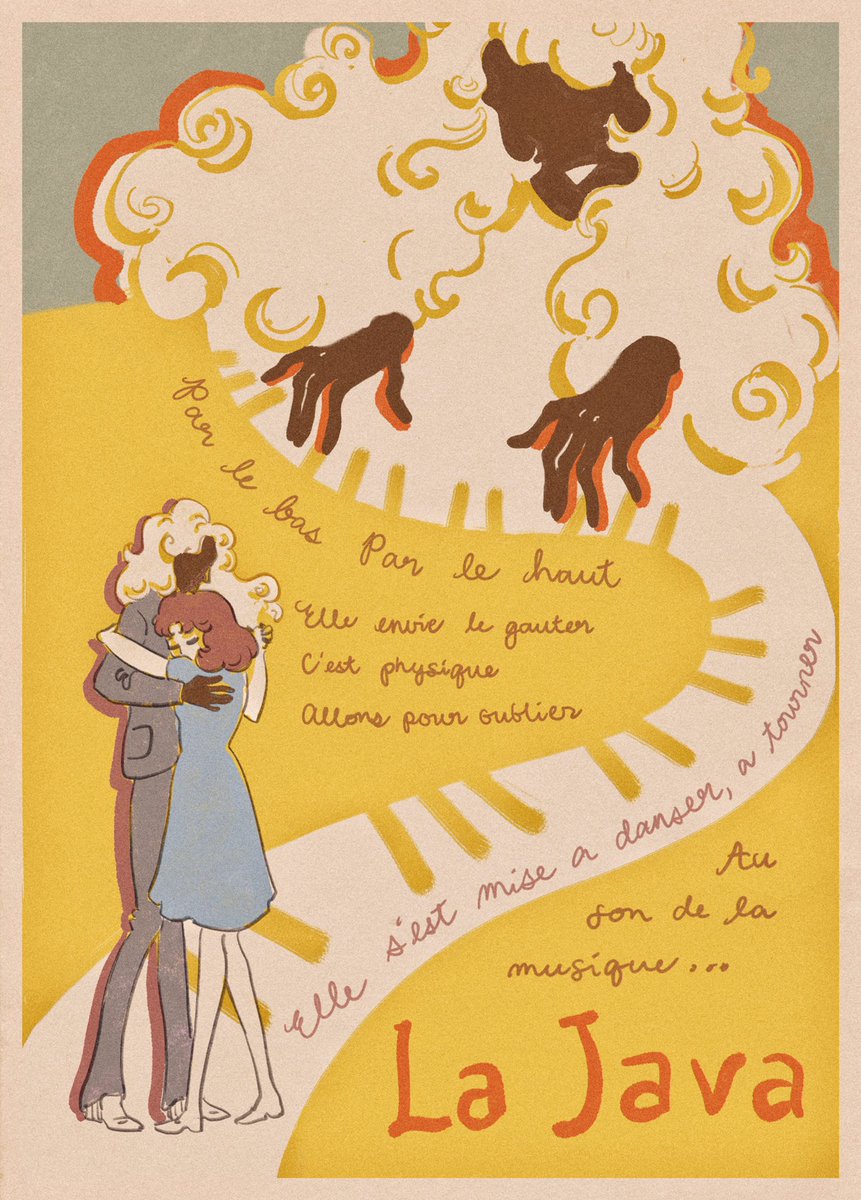 Par le bas Par le haut
Elle envie le gauter
C'est physique
Allons pour oublier
Elle s'est mise a danser, a tourner
Au
son de la
musique...
La Java